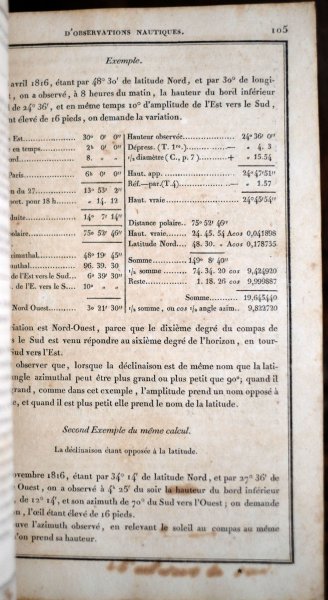 D'OBSERVATIONS NAUTIQUES. 105
Exemple.
avril 1816, étant par 48° 30' de latitude Nord, et par 30° de longi-
t, on a observé, à 8 heures du matin, la hauteur du bord inférieur
de 24° 36', et en même temps 10° d'amplitude de l'Est vers le Sud,
ant élevé de 16 pieds, on demande la variation.
Est 30° 0' 0"
en temps 2h 0' 0"
ord 8.
Paris 6h 0' 0"
on du 27 13° 53' 2"
port. pour 18 h + 14. 12
duite 14° 7' 14"
olaire 75° 52' 46"
azimuthal 48° 19' 45"
uthal 96. 39. 30
de l'Est vers le Sud 6° 39' 30"
de l'E. vers le S 10°
Nord Ouest 3° 21' 30"
Hauteur observée 24° 36' 0"
Dépress. (T. 1re.) — 4. 3
1/2 diamètre (C., p. 7) + 15.54
Haut. app. 24° 47' 51"
Réf.—par.(T.4) — 1.57
Haut. vraie 24° 45' 54"
Distance polaire 75° 52' 46"
Haut. vraie 24. 45. 54 Acos 0,041898
Latitude Nord 48. 30. Acos 0,178735
Somme 149° 8' 40"
1/2 somme 74. 34. 20 cos 9,424920
Reste 1. 18. 26 cos 9,999887
Somme 19,645440
1/2 somme, ou cos 1/2 angle azim. 9,822720
iation est Nord-Ouest, parce que le dixième degré du compas de
s le Sud est venu répondre au sixième degré de l'horizon, en tour-
Sud vers l'Est.
observer que, lorsque la déclinaison est de même nom que la lati-
angle azimuthal peut être plus grand ou plus petit que 90°; quand il
grand, comme dans cet exemple, l'amplitude prend un nom opposé à
e, et quand il est plus petit elle prend le nom de la latitude.
Second Exemple du même calcul.
La déclinaison étant opposée à la latitude.
novembre 1816, étant par 34° 14' de latitude Nord, et par 27° 36' de
Ouest, on a observé à 4h 25' du soir la hauteur du bord inférieur
l, de 12° 14', et son azimuth de 70° du Sud vers l'Ouest; on demande
on, l'œil étant élevé de 16 pieds.
uve l'azimuth observé, en relevant le soleil au compas au même
'on prend sa hauteur.